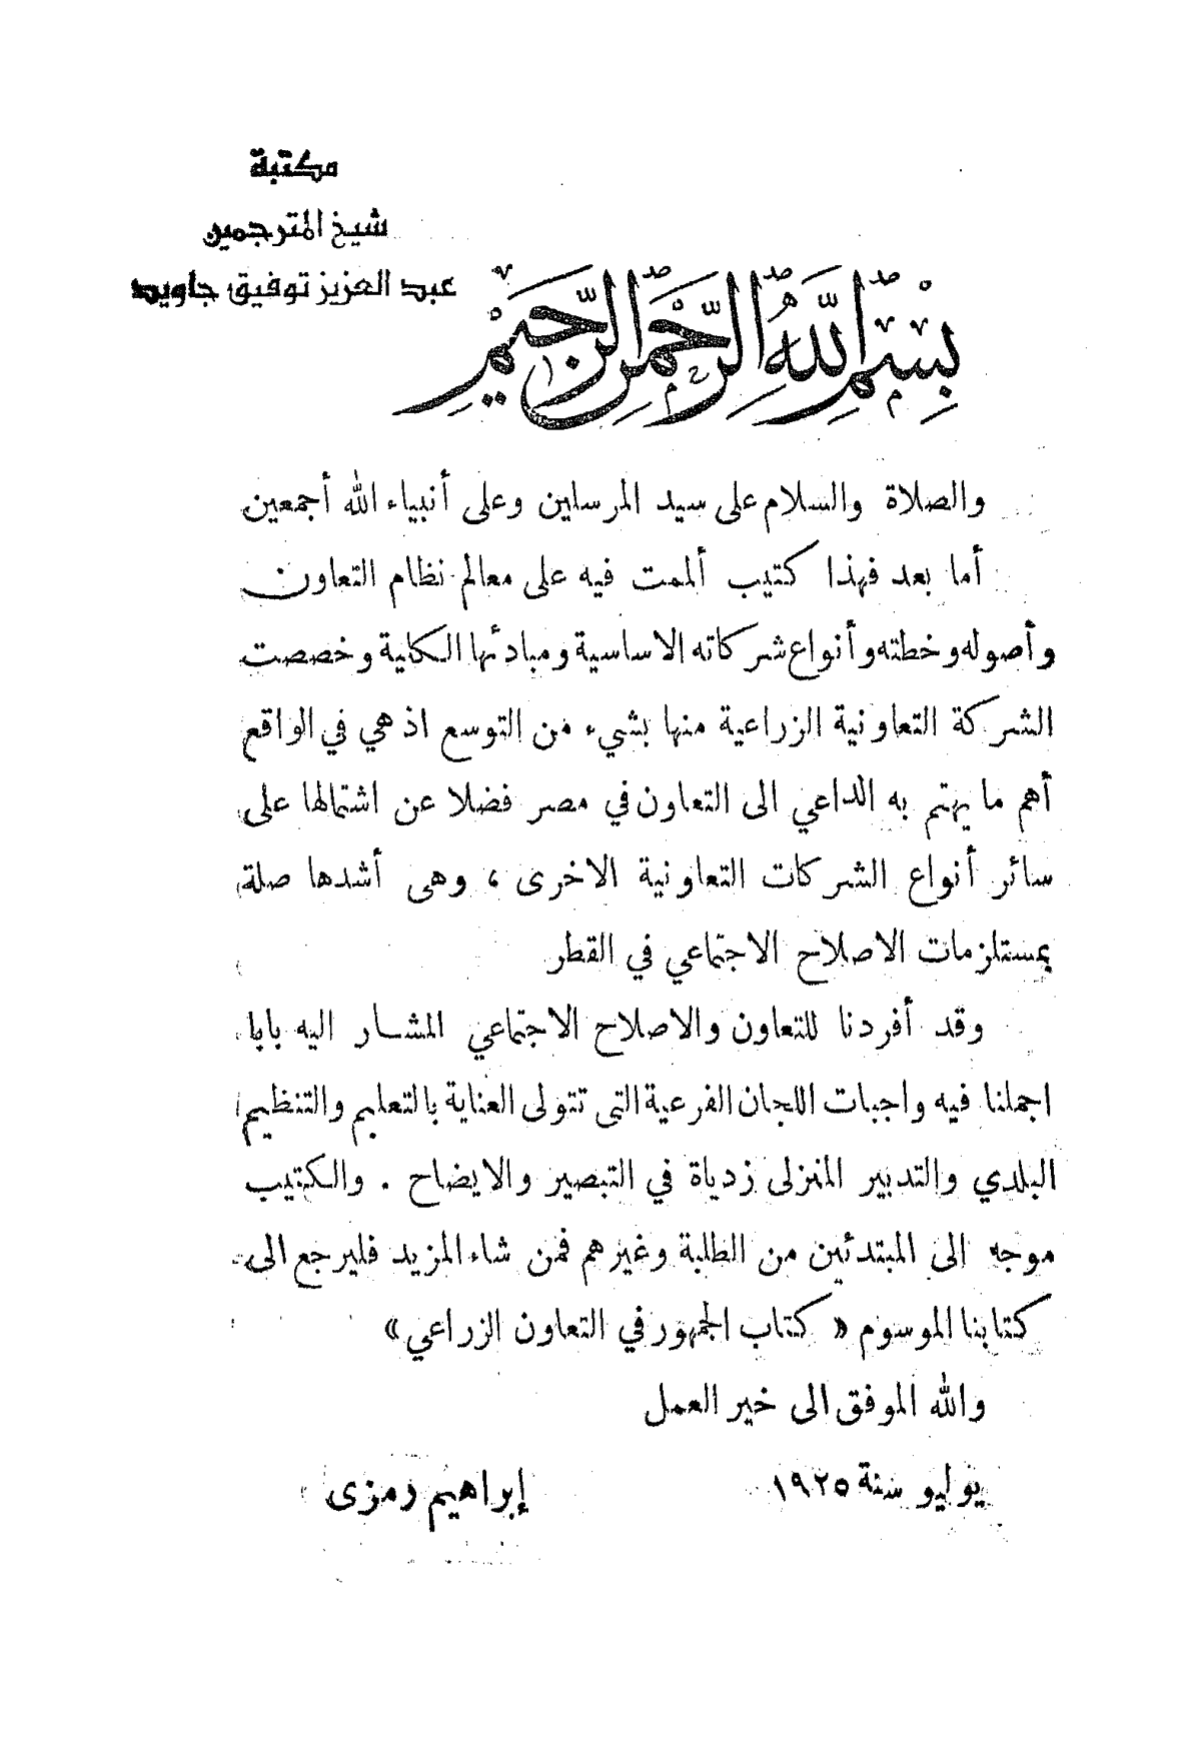 مكتبة
شيخ المترجمين
عبد العزيز توفيق جاويد
بِسْمِ اللَّهِ الرَّحْمَنِ الرَّحِيمِ
والصلاة والسلام على سيد المرسلين وعلى أنبياء الله أجمعين
أما بعد فهذا كتيب ألممت فيه على معالم نظام التعاون
وأصوله وخطته وأنواع شركاته الاساسية ومبادئها الكلية وخصصت
الشركة التعاونية الزراعية منها بشيء من التوسع اذ هي في الواقع
أهم ما يهتم به الداعي الى التعاون في مصر فضلا عن اشتمالها على
سائر أنواع الشركات التعاونية الاخرى ، وهى أشدها صلة
بمستلزمات الاصلاح الاجتماعي في القطر
وقد أفردنا للتعاون والاصلاح الاجتماعي المشار اليه بابا
اجملنا فيه واجبات اللجان الفرعية التى تتولى العناية بالتعليم والتنظيم
البلدي والتدبير المنزلى زدياة في التبصير والايضاح . والكتيب
موجه الى المبتدئين من الطلبة وغيرهم فمن شاء المزيد فليرجع الى
كتابنا الموسوم « كتاب الجمهور في التعاون الزراعي »
والله الموفق الى خير العمل
يوليو سنة ١٩٢٥ إبراهيم رمزى